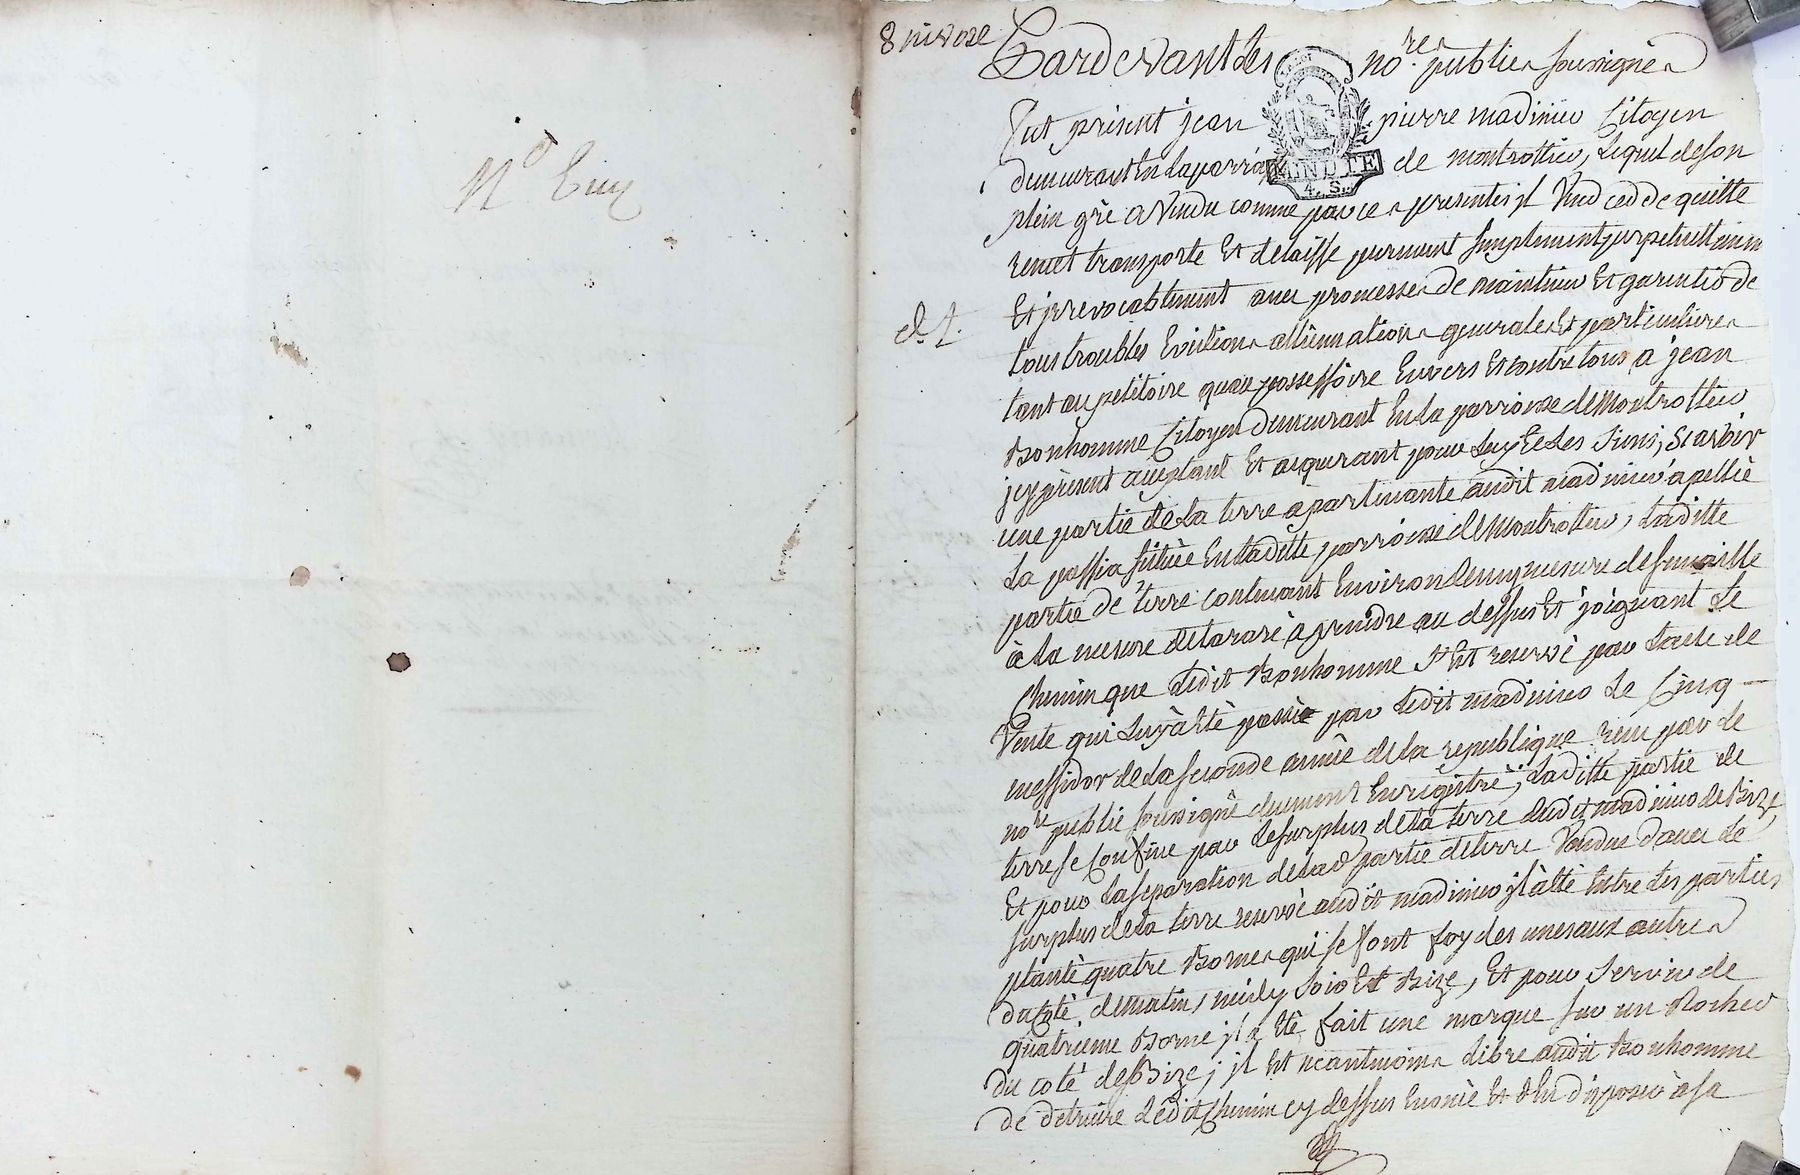 8 nivose
Pardevant les no.re public soussigné
Fut présent jean pierre madinier Citoyen
demeurant en la parroi de montrottier, lequel de son
LA LOI
MINUTE
4. S.
plein gré a vendu comme par ces presentes jl Vend cedde quitte
remet transporte Et delaisse purement simplement perpetuellemen
Et jrrevocablement avec promesse de maintenir Et garentir de
tous troubles Evictions allienations generale Et particuliere
tant au petitoire quau possessoire Envers Et contre tous à jean
Bonhomme Citoyen demeurant En la parroisse de Montrottier
jcy présent aceptant Et aquerant pour luy Et les siens, Scavoir
une partie de la terre apartenante audit madinier apellée
La passia située En laditte parroisse de Montrottier, Laditte
partie de terre contenant Environ demy mesure de semaille
à la mesure de tarare à prendre au dessus Et joignant le
chemin que ledit Bonhomme s'est reservé par lacte de
Vente qui luy à Eté passée par ledit madinier le Cinq
messidor de la seconde année de la republique reçu par le
no.re public soussigné duement Enregistré, laditte partie de
terre se Confine par le surplus de la terre dudit madinier de Bize,
Et pour la separation de lad partie de terre Vendue d'avec le
surplus de la terre reservée audit madinier jl à été Entre les parties
planté quatre Bornes qui se font foy des unes aux autres
du Coté de matin, midy soir Et Bize, Et pour servir de
quatrieme Borne jl a Eté fait une marque sur un Rocher
du coté de Bize; jl Est neantmoins libre audit Bonhomme
de detruire ledit Chemin cy dessus Enoncé Et d'En disposer à sa
N.o